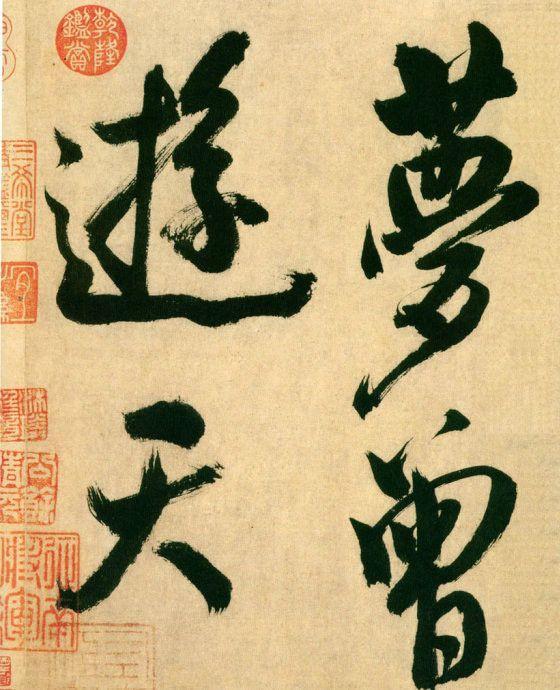 夢曾
遊天
乾隆鑑賞
三希堂